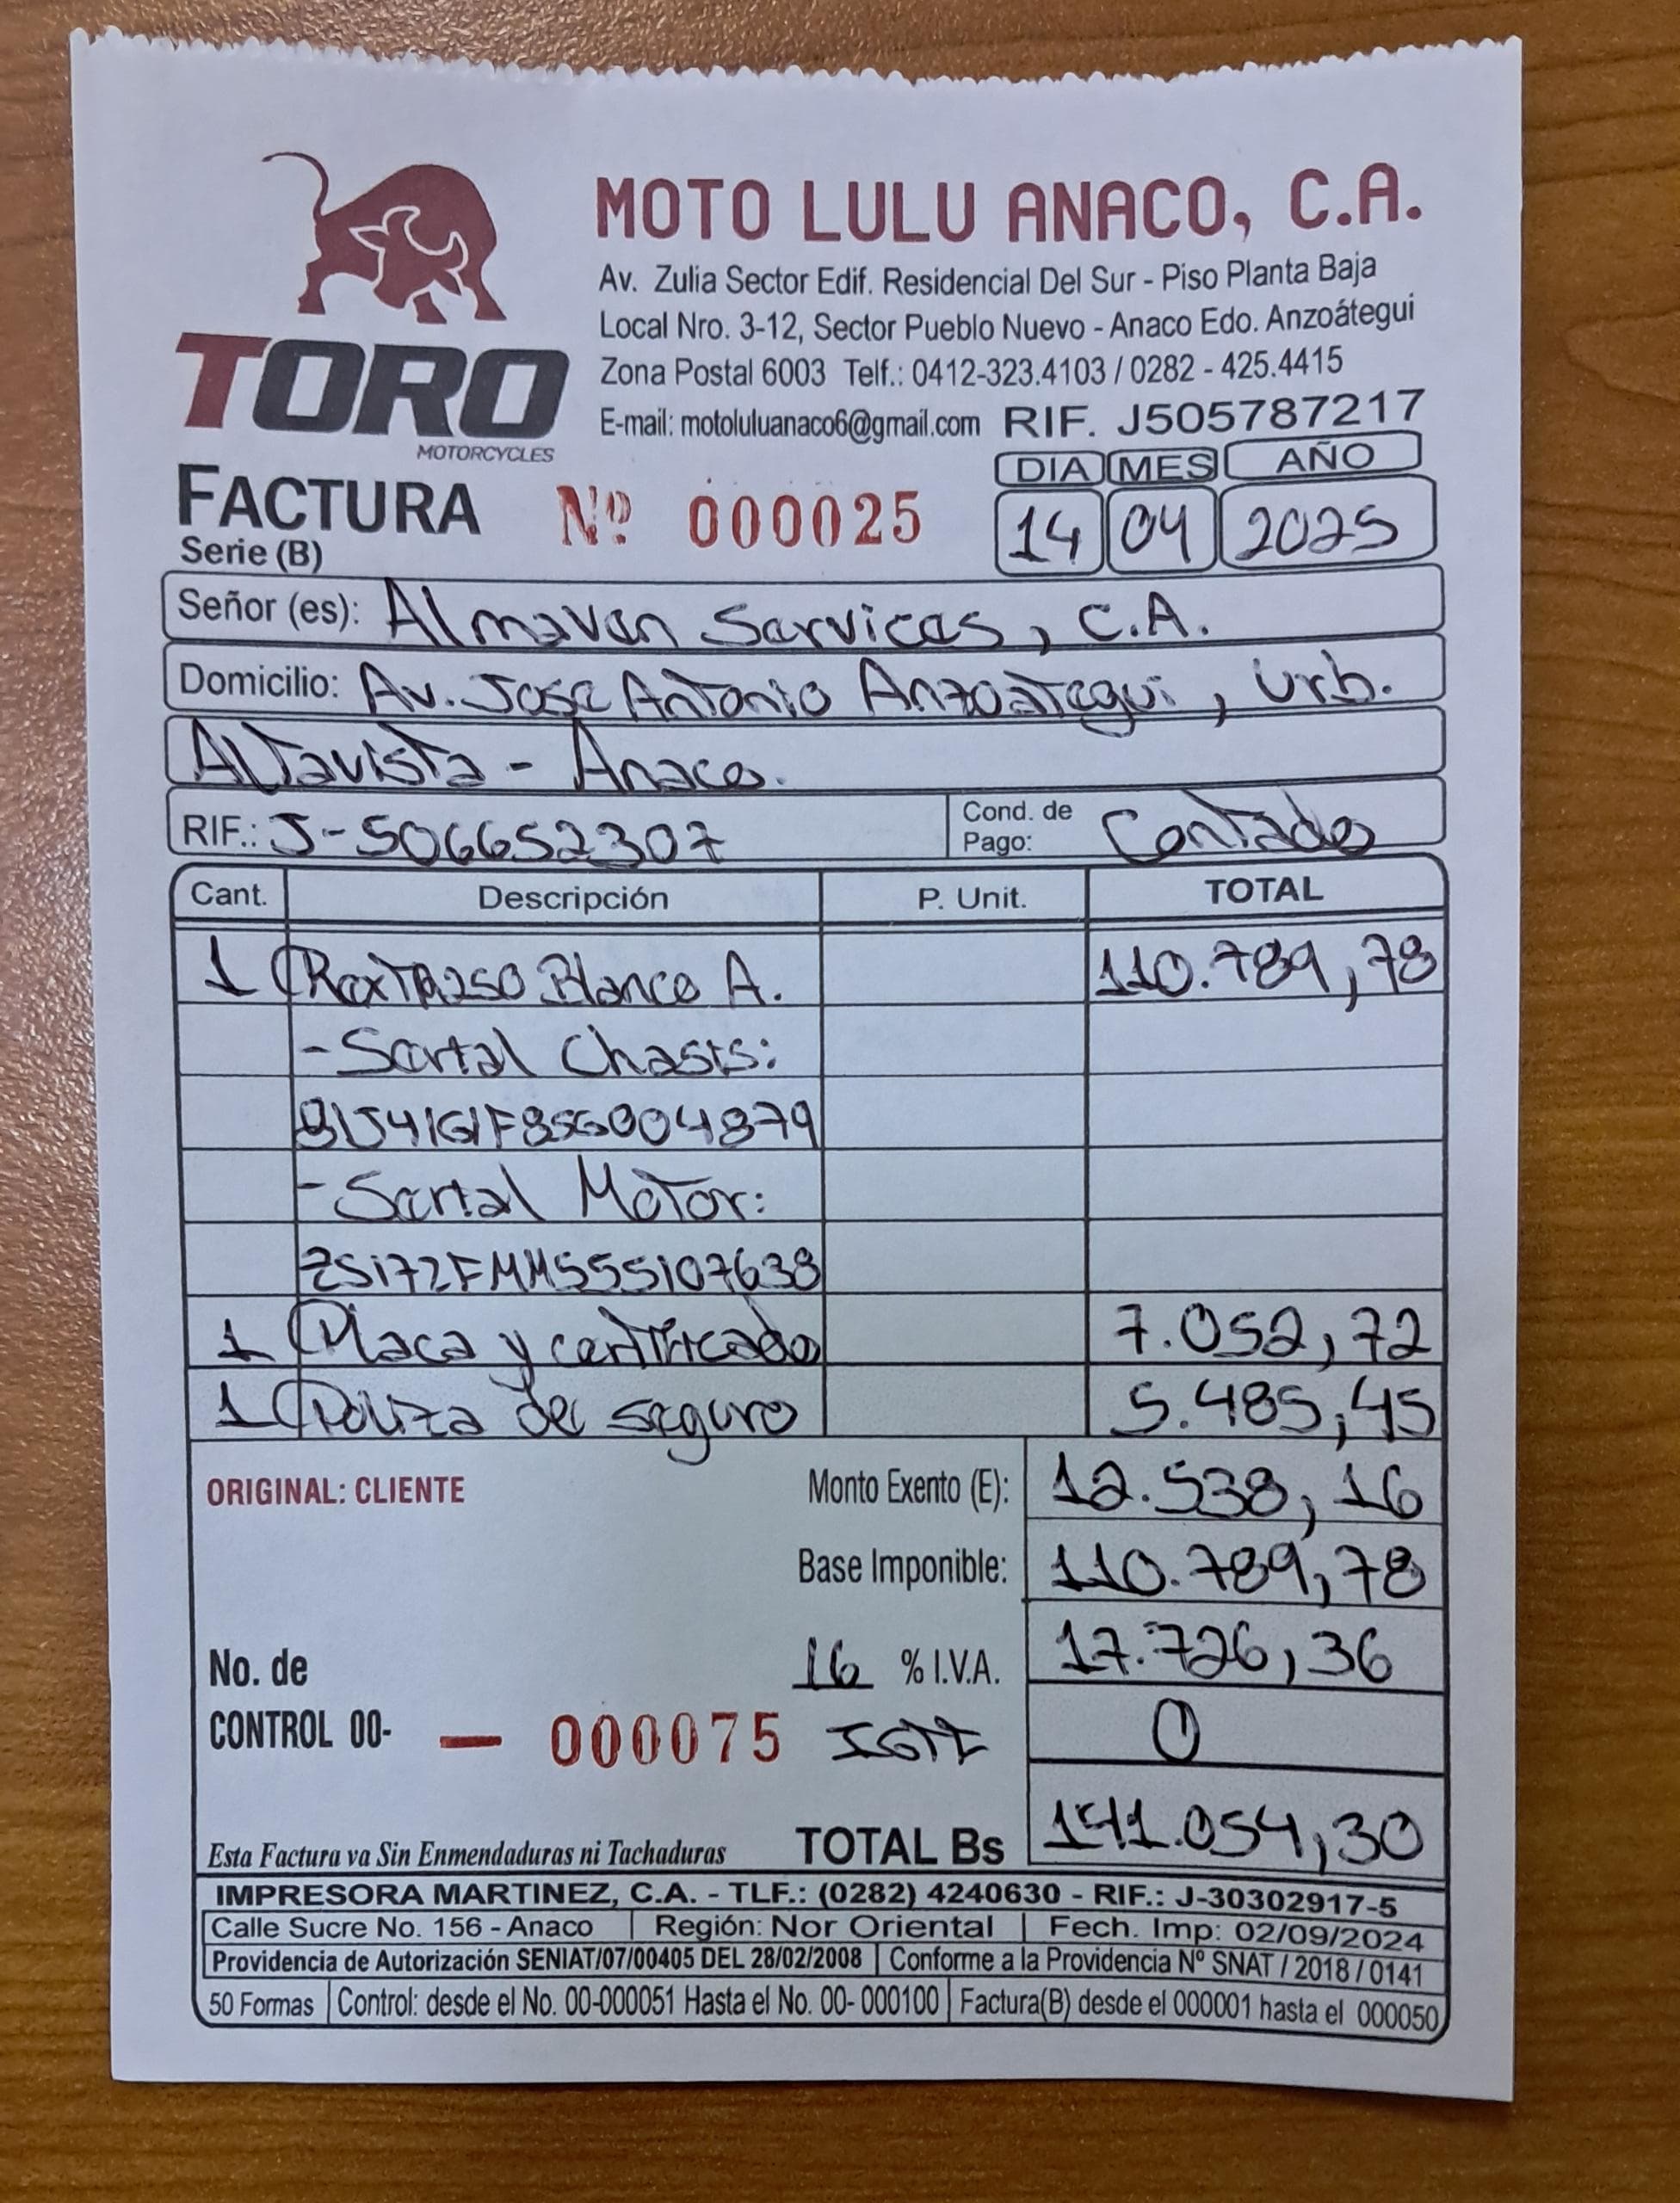 MOTO LULU ANACO, C.A.
Av. Zulia Sector Edif. Residencial Del Sur - Piso Planta Baja
Local Nro. 3-12, Sector Pueblo Nuevo - Anaco Edo. Anzoátegui
Zona Postal 6003 Telf.: 0412-323.4103 / 0282 - 425.4415
E-mail: motoluluanaco6@gmail.com RIF. J505787217
TORO
MOTORCYCLES
DIA MES AÑO
FACTURA Nº 000025 14 04 2025
Serie (B)
Señor (es): Almaven Services, C.A.
Domicilio: Av. Jose Antonio Anzoategui, Urb.
Altavista - Anaco.
RIF.: J-506652307 Cond. de Pago: Contado
Cant. Descripción P. Unit. TOTAL
1 250 Blanco A. 110.789,78
- Serial Chasis:
- Serial Motor:
ZS172FMM555107638
1 Placa y certificado 7.052,72
1 Poliza de seguro 5.485,45
ORIGINAL: CLIENTE Monto Exento (E): 12.538,16
Base Imponible: 110.789,78
16 % I.V.A. 17.726,36
No. de
CONTROL 00- — 000075 IGTF 0
Esta Factura va Sin Enmendaduras ni Tachaduras TOTAL Bs 141.054,30
IMPRESORA MARTINEZ, C.A. - TLF.: (0282) 4240630 - RIF.: J-30302917-5
Calle Sucre No. 156 - Anaco Región: Nor Oriental Fech. Imp: 02/09/2024
Providencia de Autorización SENIAT/07/00405 DEL 28/02/2008 Conforme a la Providencia Nº SNAT / 2018 / 0141
50 Formas Control: desde el No. 00-000051 Hasta el No. 00- 000100 Factura(B) desde el 000001 hasta el 000050